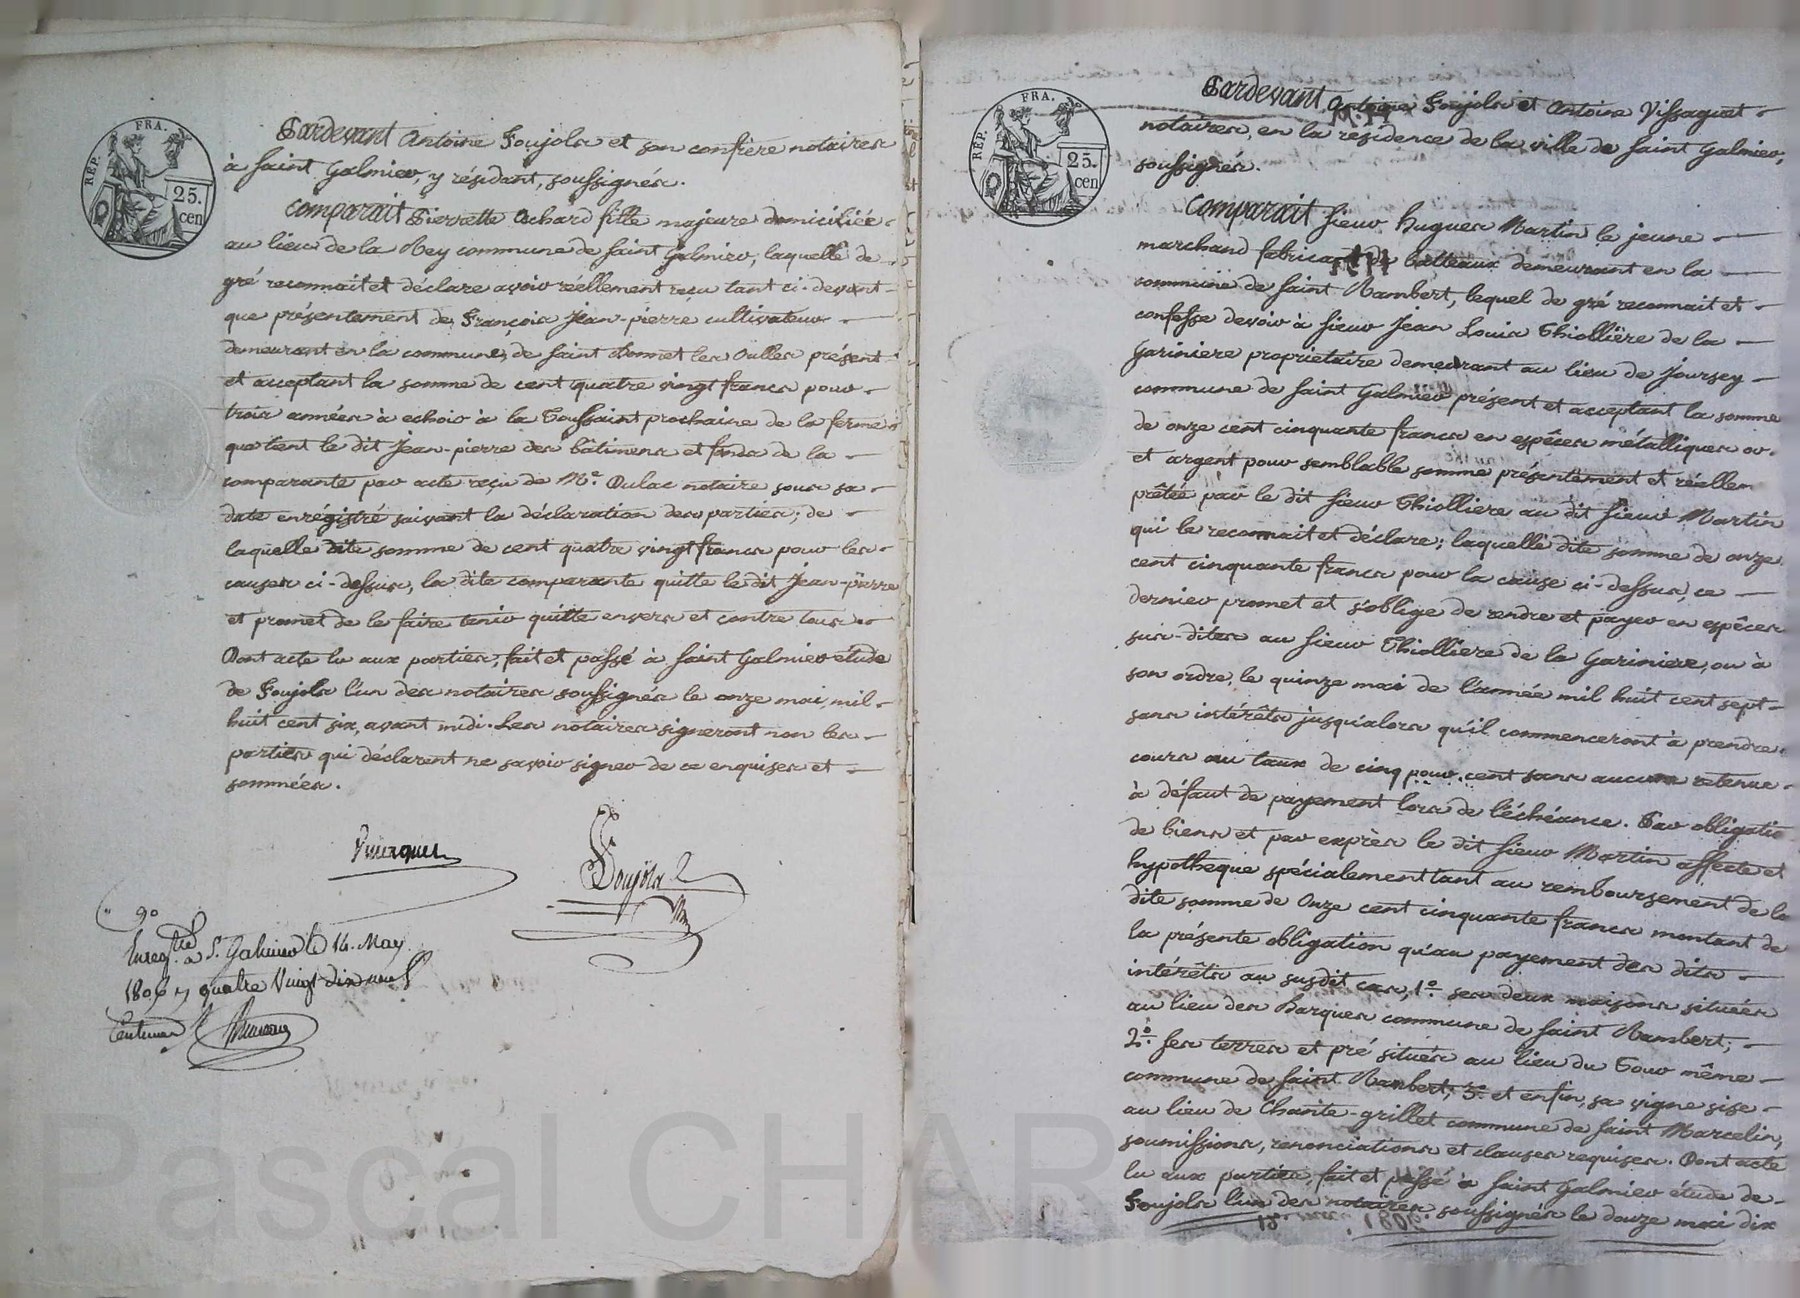 REP. FRA.
25.
cen
Pardevant Antoine Poujols et son confrère notaires
à Saint Galmier, y résidant, soussignés.
Comparait Pierrette Achard fille majeure domiciliée
au lieu de la Rey commune de Saint Galmier, laquelle de
gré reconnait et déclare avoir réellement reçu tant ci-devant
que présentement de François Jean-pierre cultivateur
demeurant en la commune de Saint Bonnet les Oulles présent
et acceptant la somme de cent quatre vingt francs pour
trois années à echoir à la Toussaint prochaine de la ferme
que tient le dit Jean-pierre des bâtimens et fonds de la
comparante par acte reçu de Me. Dulac notaire sous sa
date enrégistré suivant la déclaration des parties; de
laquelle dite somme de cent quatre vingt francs pour les
causes ci-dessus, la dite comparante quitte le dit Jean-pierre
et promet de le faire tenir quitte envers et contre tous.
Dont acte lu aux parties, fait et passé à Saint Galmier étude
de Poujols l'un des notaires soussignés le onze mai, mil
huit cent six, avant midi. Les notaires signeront non les
parties qui déclarent ne savoir signer de ce enquises et
sommées.
Poujols
90
Enregtré à St. Galmier le 14. May
1806 quatre Vingt dix neuf
Centimes
REP. FRA.
25.
cen
Pardevant Antoine Poujols et Antoine Vissaguet
notaires, en la résidence de la ville de Saint Galmier,
soussignés.
Comparait sieur Hugues Martin le jeune
marchand fabricant de batteaux demeurant en la
commune de Saint Rambert, lequel de gré reconnait et
confesse devoir à sieur Jean Louis Thiollière de la
Gariniere propriétaire demeurant au lieu de Joursey
commune de Saint Galmier présent et acceptant la somme
de onze cent cinquante francs en espèces métalliques or
et argent pour semblable somme présentement et réellem
prêtée par le dit sieur Thiolliere au dit sieur Martin
qui le reconnait et déclare; laquelle dite somme de onze
cent cinquante francs pour la cause ci-dessus, ce
dernier promet et s'oblige de rendre et payer en espèces
sus-dites au sieur Thiolliere de la Gariniere, ou à
son ordre, le quinze mai de l'année mil huit cent sept
sans intérêts jusqu'alors qu'il commenceront à prendre
cours au taux de cinq pour cent sans aucune retenue
à défaut de payement lors de l'échéance. Par obligatio
de biens et par exprès le dit sieur Martin affecte et
hypotheque spécialement tant au remboursement de la
dite somme de Onze cent cinquante francs montant de
la présente obligation qu'au payement des dits
intérêts au susdit cas, 1o. ses deux maisons situées
au lieu des Barques commune de Saint Rambert;
2o. ses terres et pré situés au lieu du Four même
commune de Saint Rambert; 3o. et enfin, sa vigne sise
au lieu de Chante-grillet commune de Saint Marcelin,
soumissions, renonciations et clauses requises. Dont acte
lu aux parties, fait et passé à Saint Galmier étude de
Poujols l'un des notaires soussignés le douze mai dix
Pascal CHAR